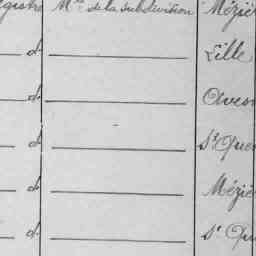 gistre Mre de la subdivision Méziè
d Lille
d Avesn
d St Quen
d Méziè
d St Qu